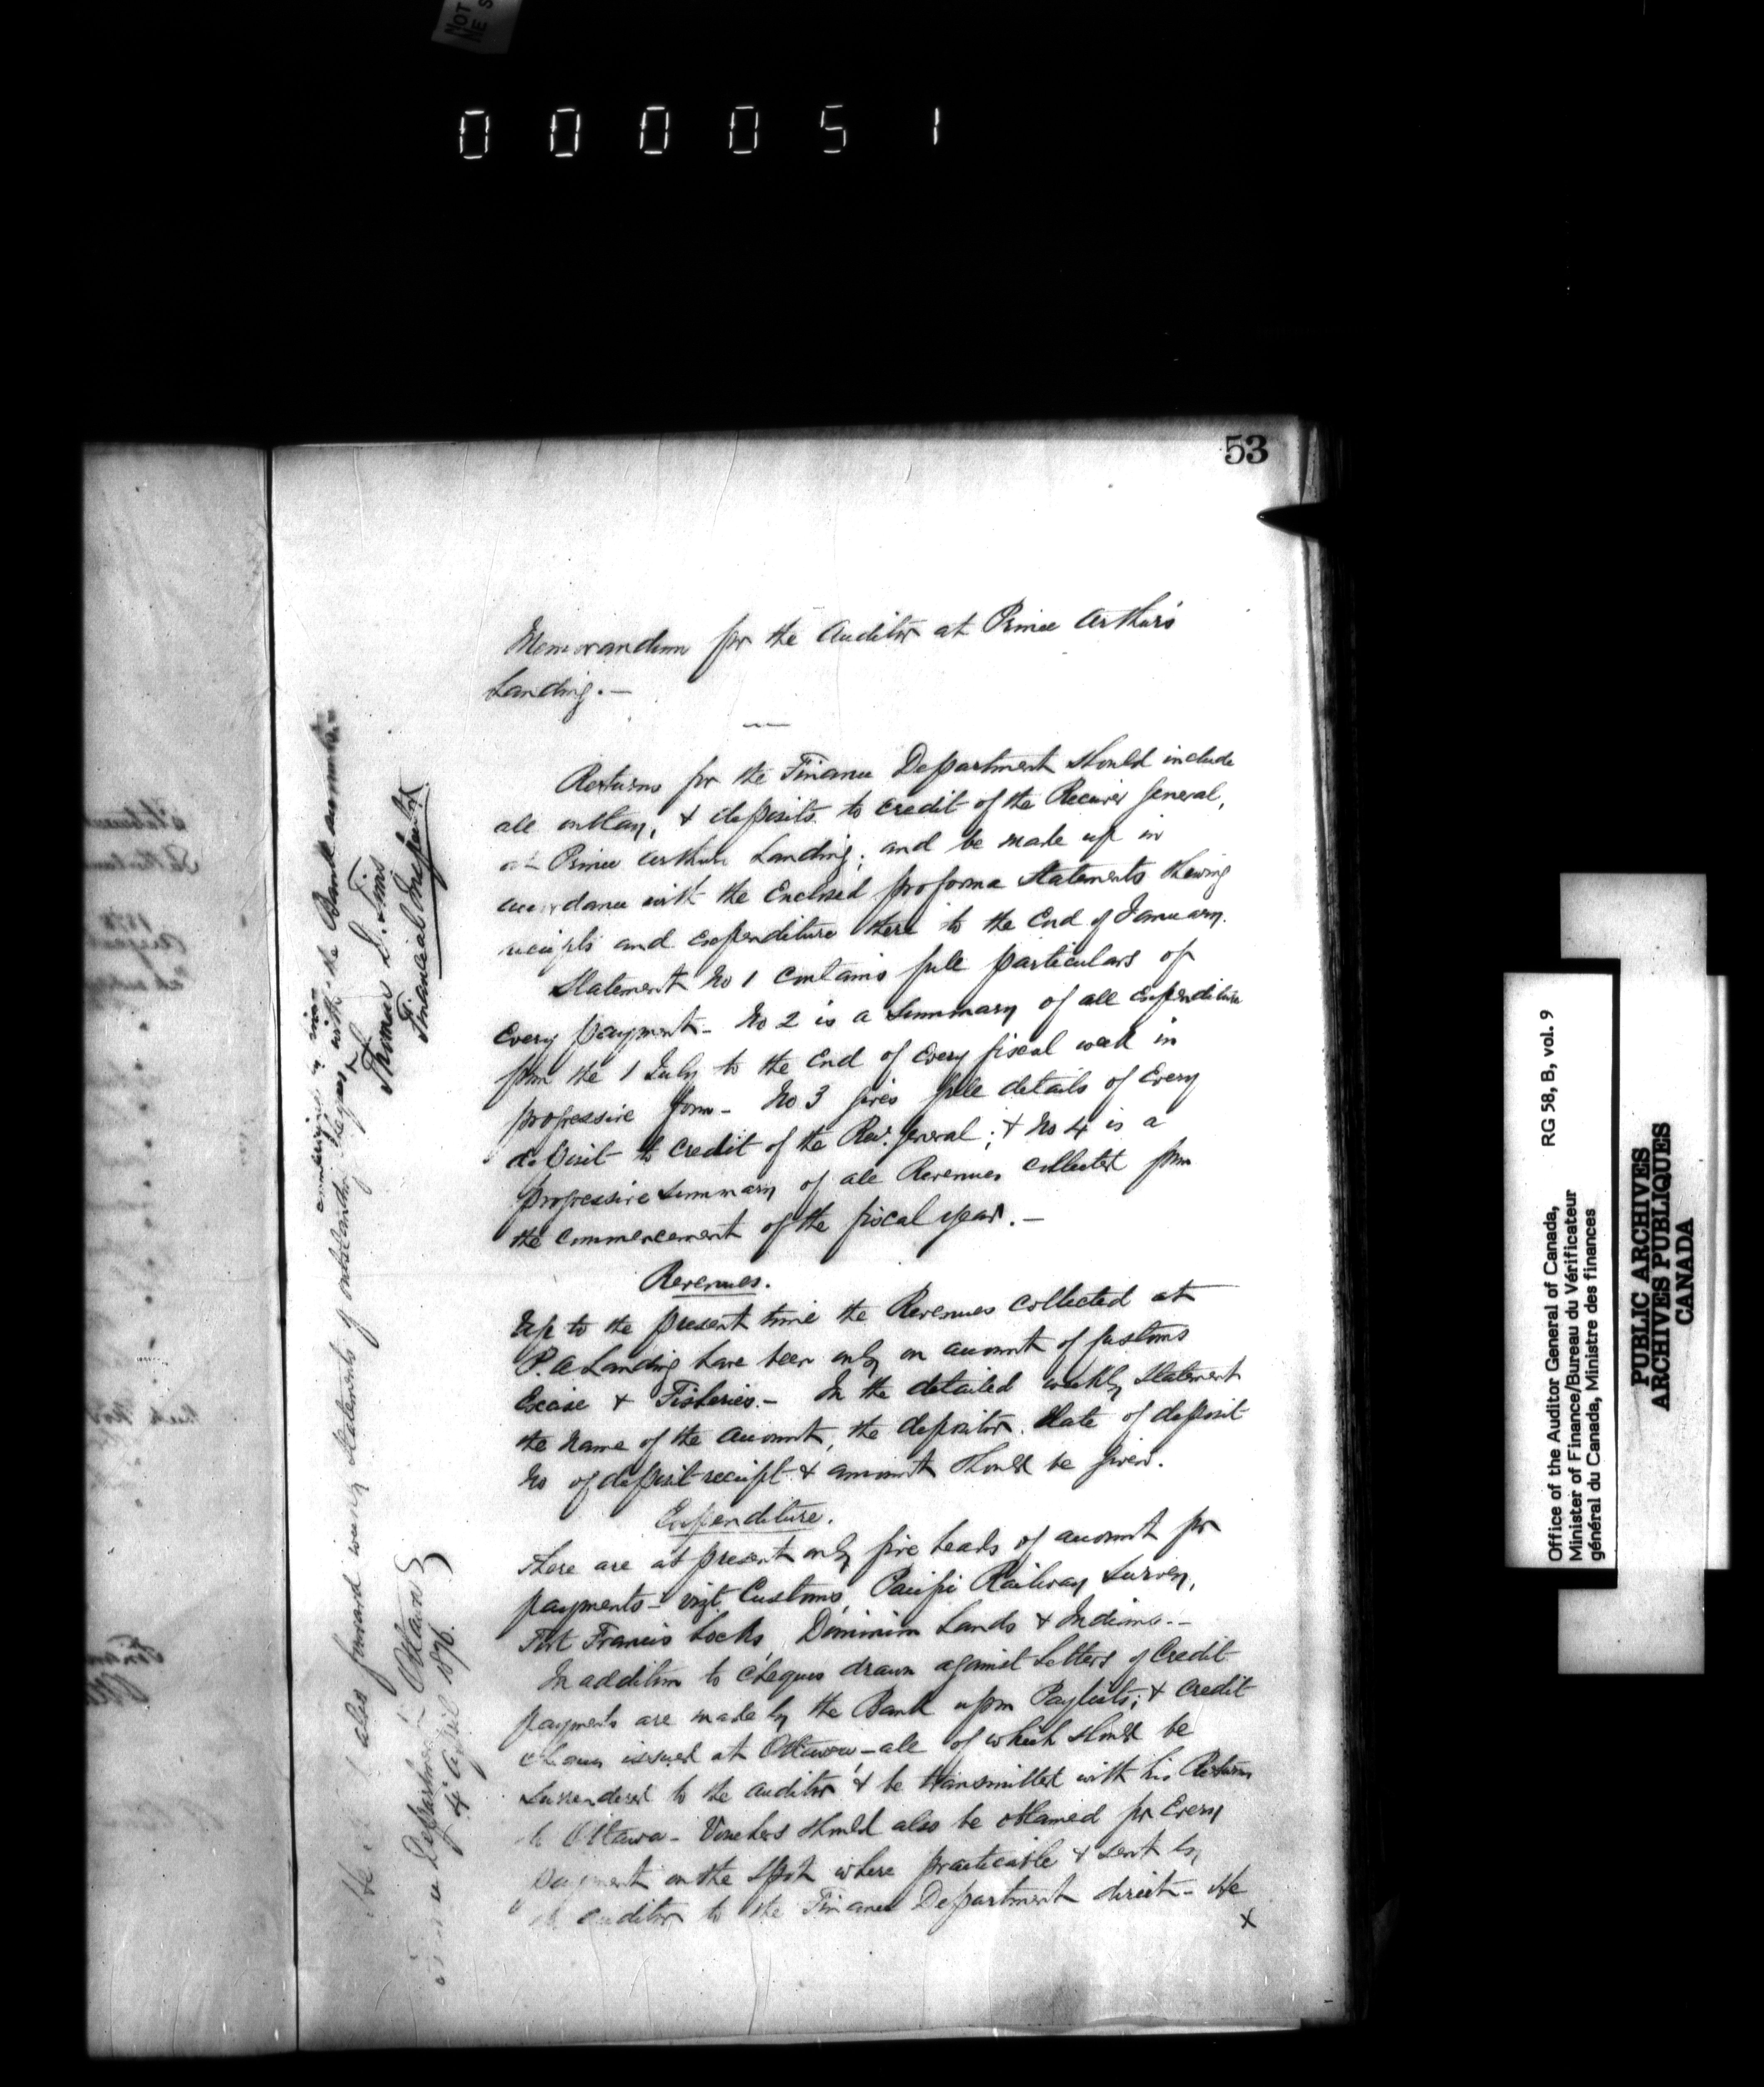 000051
53
Memorandum for the Auditor at Prince Arthur's
Landing. —
Returns for the Finance Department should include
all outlay, & deposits to credit of the Receiver General,
at Prince Arthur Landing; and be made up in
accordance with the Enclosed proforma Statements shewing
receipts and expenditure there to the End of January.
Statement No 1 contains full particulars of
Every payment - No 2 is a Summary of all Expenditure
from the 1 July to the End of Every fiscal week in
progressive form - No 3 gives full details of Every
deposit to credit of the Rec. General; & No 4 is a
progressive summary of all Revenues collected from
the commencement of the fiscal year. —
Revenues.
Up to the present time the Revenues collected at
P. A Landing have been only on account of Customs
Excise & Fisheries. - In the detailed weekly Statement
the name of the account, the depositor, date of deposit
No of deposit receipt & amount should be given.
Expenditure.
There are at present only five heads of account for
payments - vizt. Customs, Pacific Railway Survey,
Fort Francis Locks, Dominion Lands & Indians. -
In addition to cheques drawn against Letters of Credit
payments are made by the Bank upon Paylists; & credit
cheques issued at Ottawa - all of which should be
surrendered to the Auditor & be transmitted with his Returns
to Ottawa - Vouchers should also be obtained for Every
payment on the spot where practicable & sent by
the Auditor to the Finance Department direct - He
x
also forward weekly Statements of outstanding cheques,
with the Bank accounts. -
Thomas D. Tims
Financial Inspector
Finance Department Ottawa
4 April 1876.
Office of the Auditor General of Canada,
Minister of Finance/Bureau du Vérificateur
général du Canada, Ministre des finances
RG 58, B, vol. 9
PUBLIC ARCHIVES
ARCHIVES PUBLIQUES
CANADA